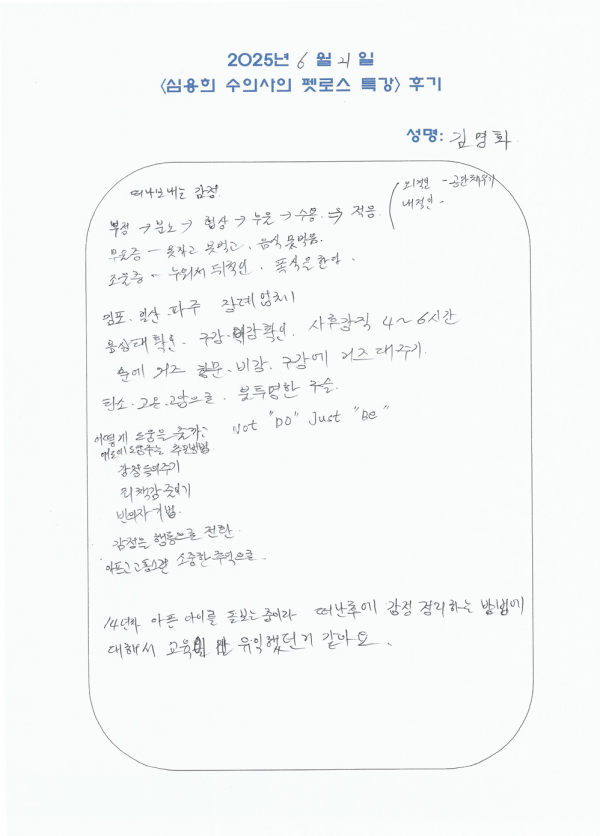 2025년 6월 21일
<심용희 수의사의 펫로스 특강> 후기
성명: 김명화
떠나보내는 감정.
부정 → 분노 → 협상 → 우울 → 수용 ⇒ 적응
외적인 - 공간채우기
내적인 -
우울증 - 못자고 못먹고, 음식 못먹음.
조울증 - 누워서 뒤척인, 폭식을 한다.
김포. 일산. 파주 장례업체
몸상태확인. 구강. 확인. 사후강직 4~6시간
솜에 거즈 항문. 비강. 구강에 거즈 대주기.
탄소. 고온. 고압으로. 불투명한 구슬.
어떻게 도움을 줄까? Not "DO" Just "Be"
애도에 도움주는 방법
감정 들어주기
죄책감 줄이기
빈의자 기법.
감정을 행동으로 전환.
아프고 고통스런 소중한 추억으로.
14년차 아픈 아이를 돌보는 중이라 떠난후에 감정 정리하는 방법에
대해서 교육 유익했던거 같아요.